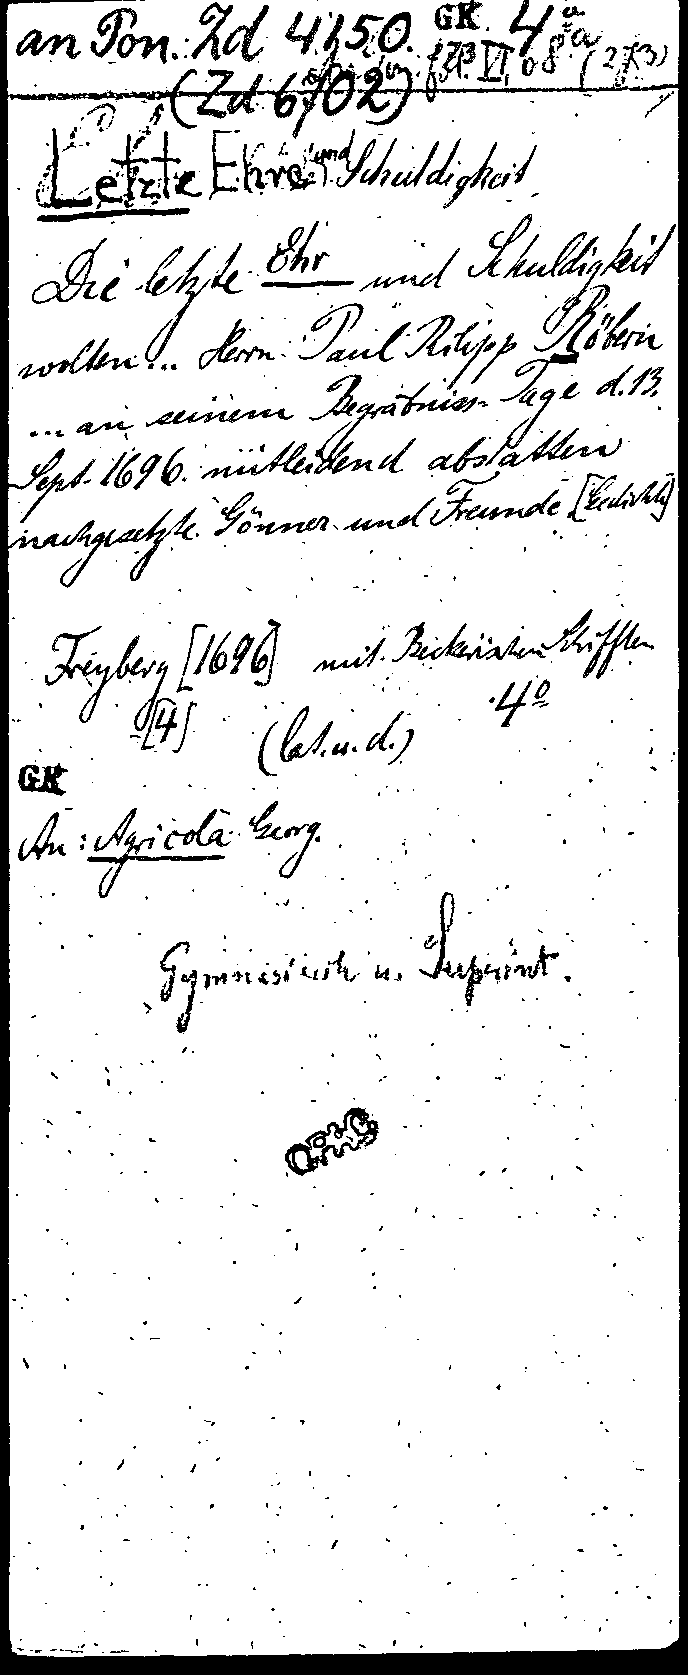 an Pon. Zd 4150. GK 4°a
(Zd 6702)
Letzte Ehre und Schuldigkeit
Die letzte Ehr und Schuldigkeit
wolten... Herrn Paul Philipp Röbern
... an seinem Begräbniss-Tage d. 13.
Sept. 1696. mitleidend abstatten
nachgesetzte Gönner und Freunde [Gedichte]
Freyberg [1696] mit Beckerischen Schrifften
[4] 4°
(lat. u. d.)
GK
An: Agricola Georg.
Gymnasium u.